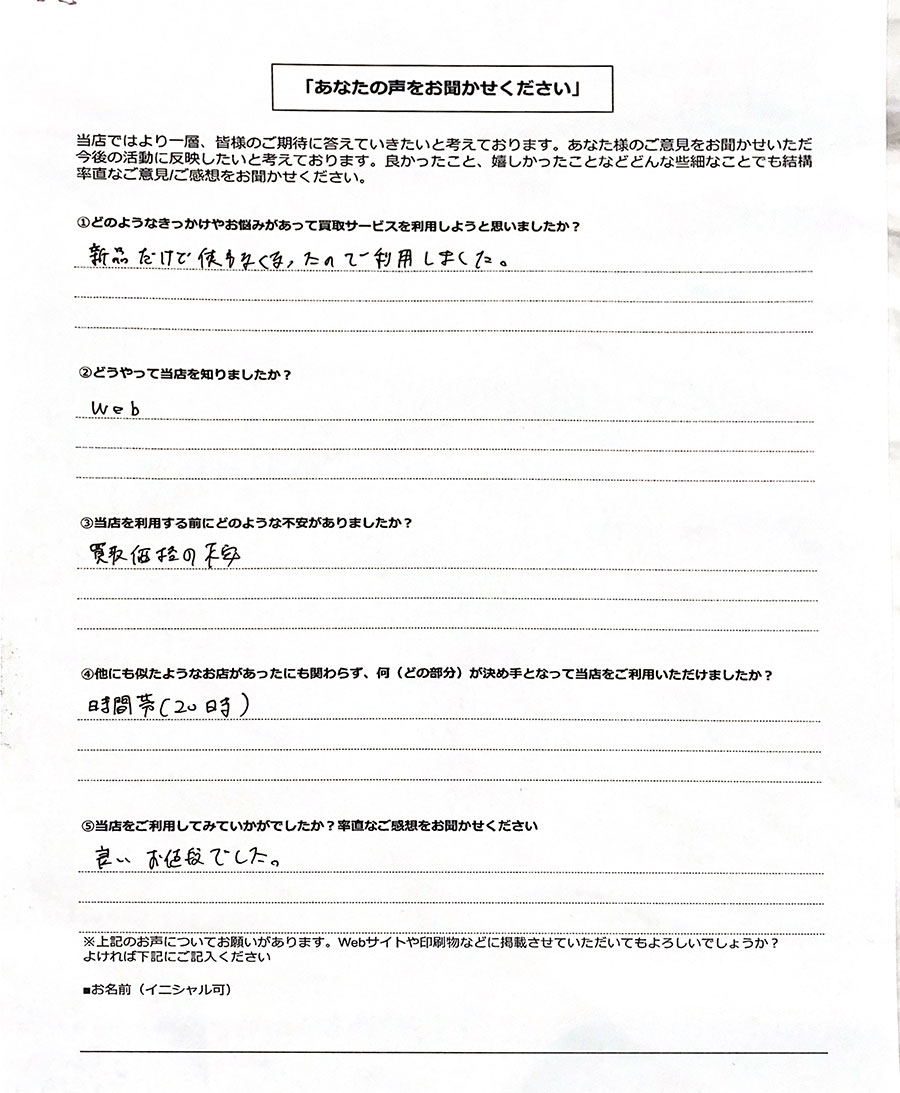 「あなたの声をお聞かせください」
当店ではより一層、皆様のご期待に答えていきたいと考えております。あなた様のご意見をお聞かせいただ
今後の活動に反映したいと考えております。良かったこと、嬉しかったことなどどんな些細なことでも結構
率直なご意見/ご感想をお聞かせください。
①どのようなきっかけやお悩みがあって買取サービスを利用しようと思いましたか？
新品だけで使わなくなったので利用しました。
②どうやって当店を知りましたか？
Web
③当店を利用する前にどのような不安がありましたか？
買取価格の不安
④他にも似たようなお店があったにも関わらず、何（どの部分）が決め手となって当店をご利用いただけましたか？
時間帯(20時)
⑤当店をご利用してみていかがでしたか？率直なご感想をお聞かせください
良い お値段でした。
※上記のお声についてお願いがあります。Webサイトや印刷物などに掲載させていただいてもよろしいでしょうか？
よければ下記にご記入ください
■お名前（イニシャル可）